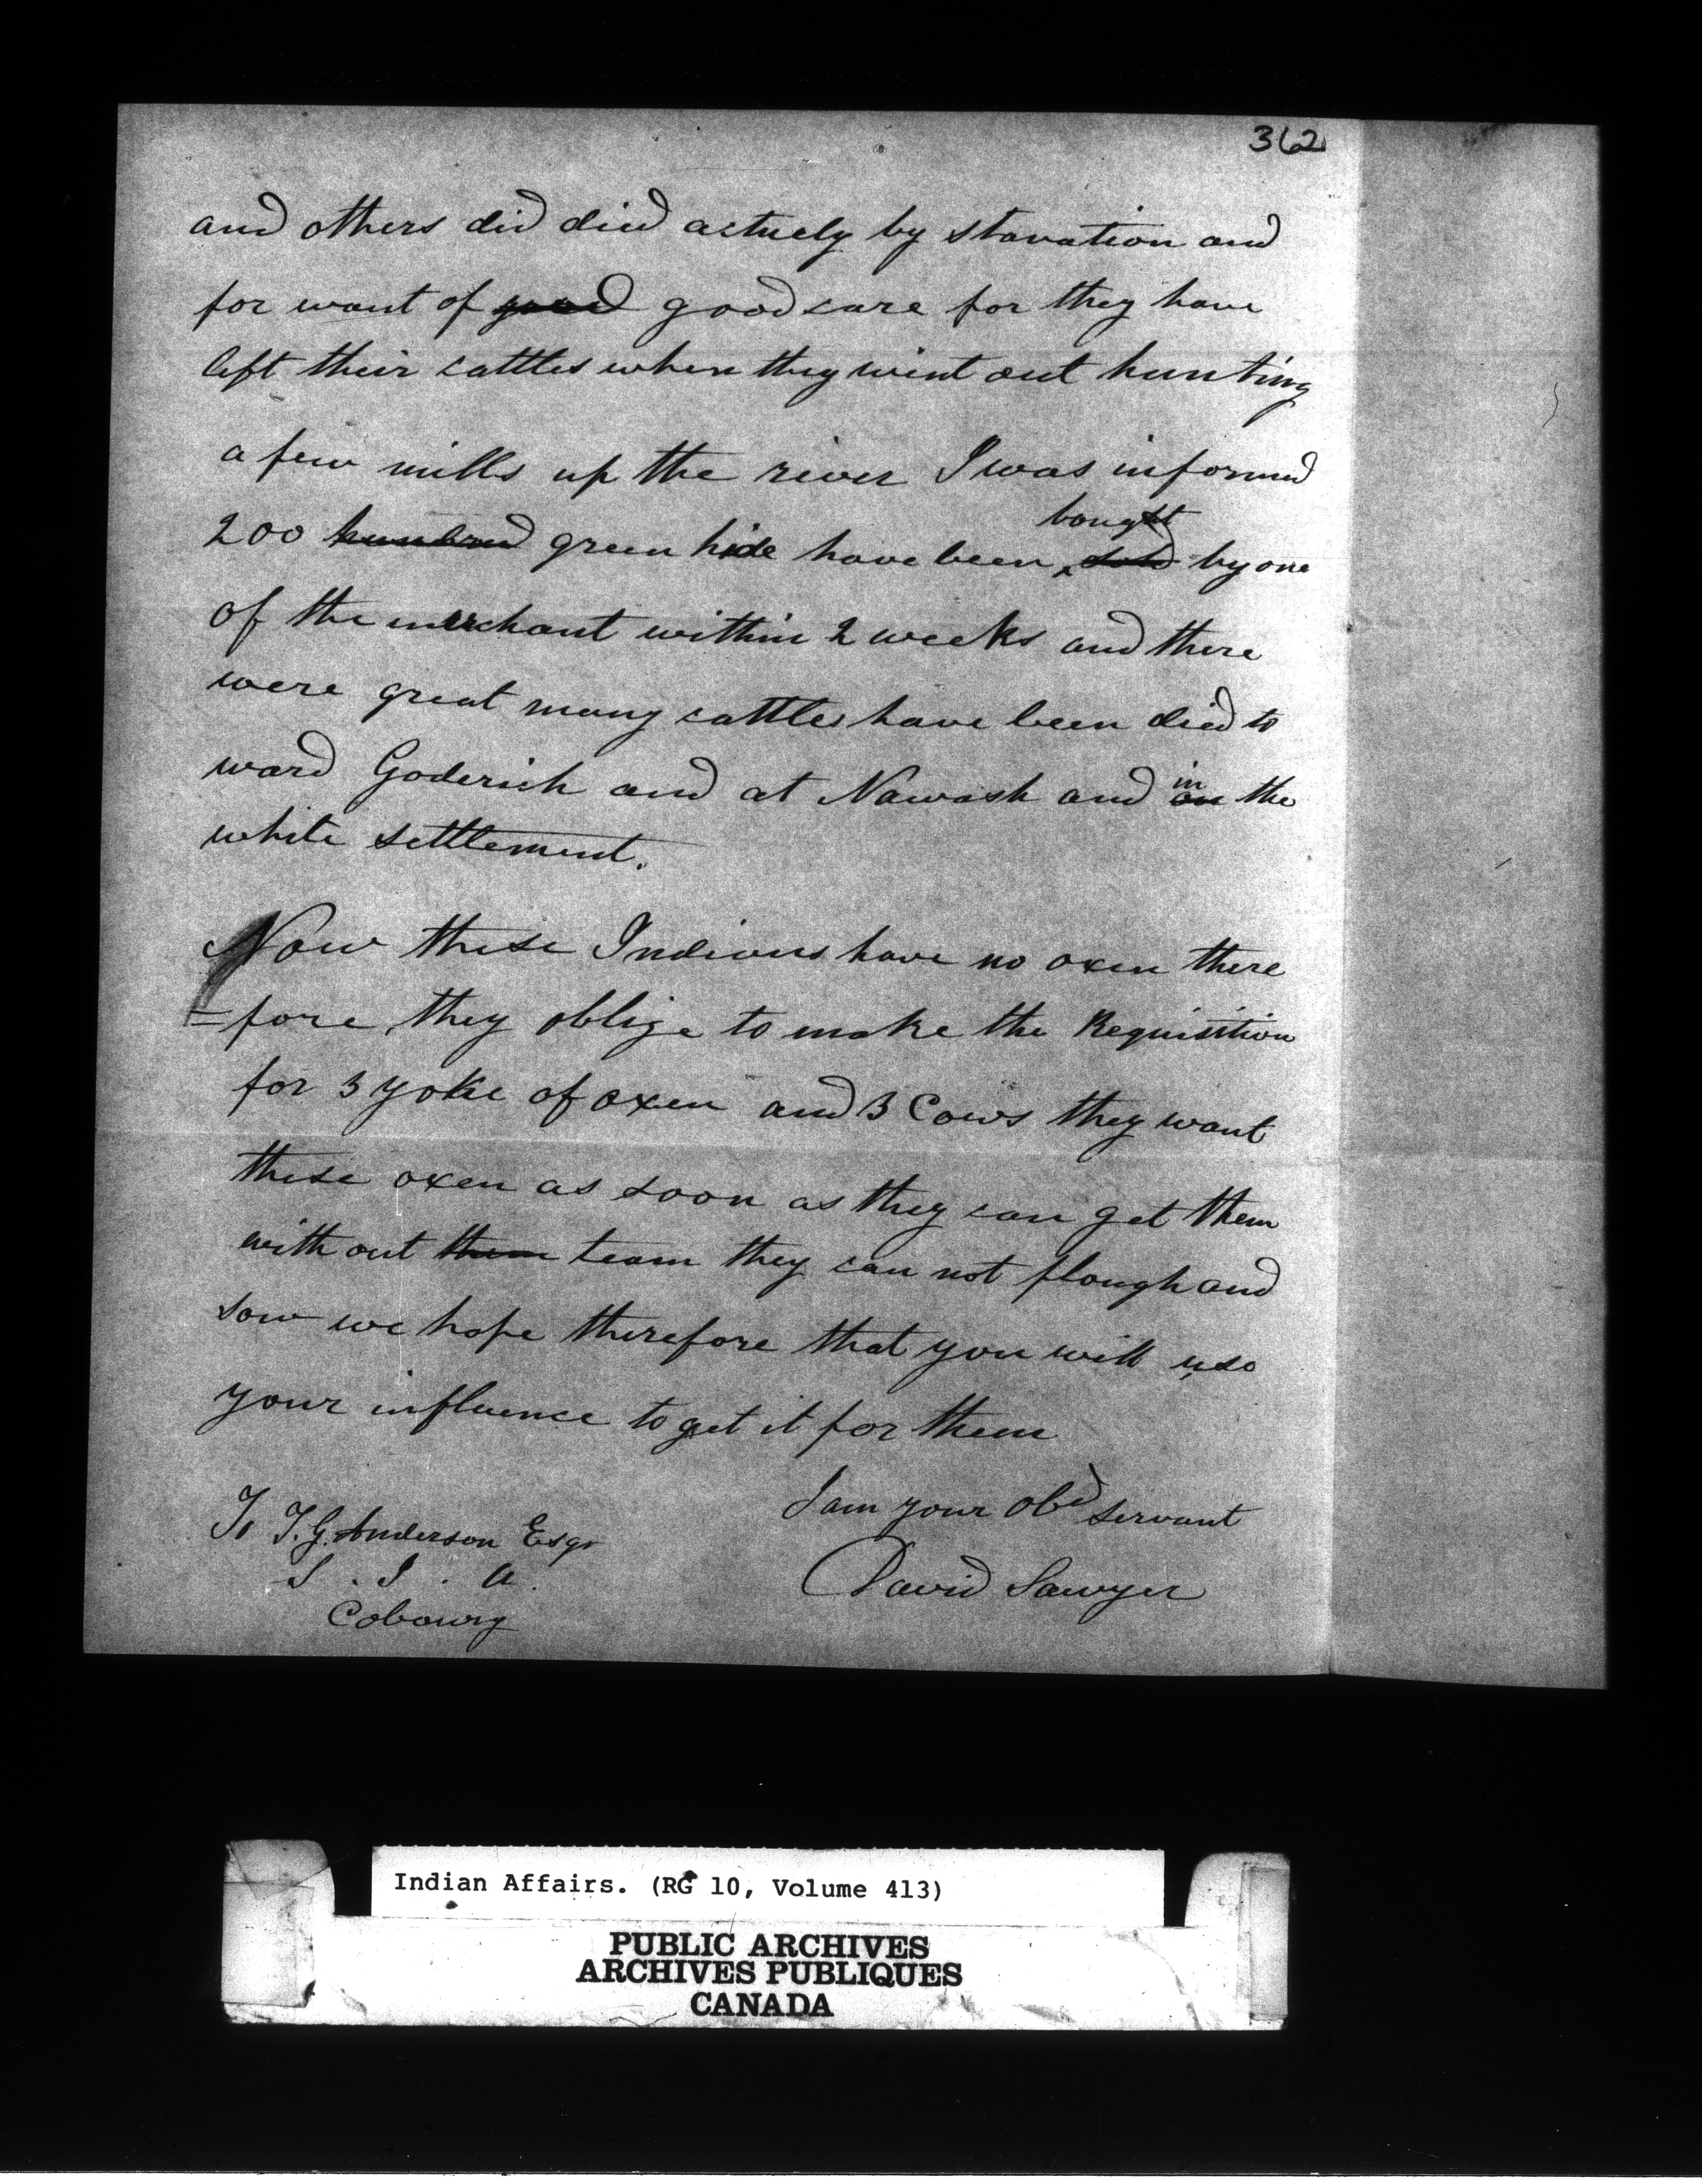 362
and others did died actuely by stavation and
for want of good good care for they have
left their cattles when they wint out hunting
a few mills up the river I was informed
bought
200 hundred green hide have been sold by one
of the merchant within 2 weeks and there
were great many cattles have been died to
in
ward Goderich and at Nawash and on the
white settlement.
Now these Indians have no oxen there
=fore they oblige to make the Requisition
for 3 yoke of oxen and 3 Cows they want
these oxen as soon as they can get them
with out them team they can not plough and
sow we hope therefore that you will use
your influence to get it for them
I am your Obd servant
David Sawyer
To T.G. Anderson Esqr
S . I . A.
Cobourg
Indian Affairs. (RG 10, Volume 413)
PUBLIC ARCHIVES
ARCHIVES PUBLIQUES
CANADA